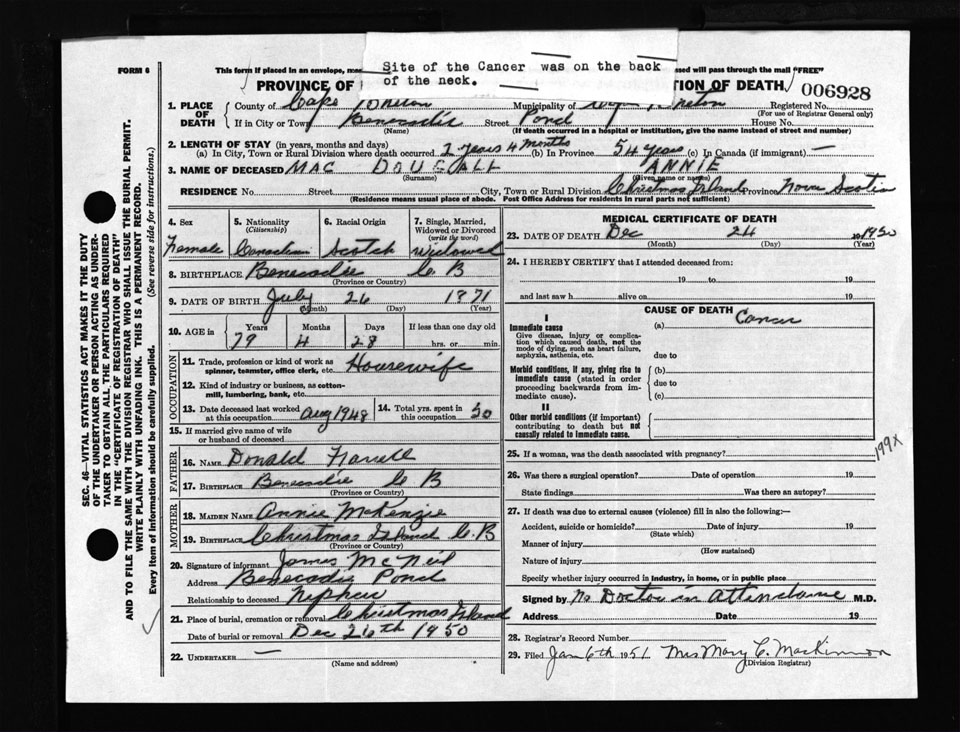 Site of the Cancer was on the back
of the neck.
FORM 6
This form if placed in an envelope, ssed will pass through the mail "FREE"
PROVINCE OF TION OF DEATH
006928
1. PLACE OF DEATH County of Cape Breton Municipality of Breton Registered No.
(For use of Registrar General only)
If in City or Town Benecadie Street Pond House No.
(Name) (If death occurred in a hospital or institution, give the name instead of street and number)
2. LENGTH OF STAY (in years, months and days)
(a) In City, Town or Rural Division where death occurred 2 years 4 months (b) In Province 54 years (c) In Canada (if immigrant) —
3. NAME OF DECEASED MAC DOUGALL ANNIE
(Surname) (Given name or names)
RESIDENCE No. Street City, Town or Rural Division Christmas Island Province Nova Scotia
(Residence means usual place of abode. Post Office Address for residents in rural parts not sufficient)
SEC. 46—VITAL STATISTICS ACT MAKES IT THE DUTY
OF THE UNDERTAKER OR PERSON ACTING AS UNDER-
TAKER TO OBTAIN ALL THE PARTICULARS REQUIRED
IN THE "CERTIFICATE OF REGISTRATION OF DEATH"
AND TO FILE THE SAME WITH THE DIVISION REGISTRAR WHO SHALL ISSUE THE BURIAL PERMIT.
WRITE PLAINLY WITH UNFADING INK. THIS IS A PERMANENT RECORD.
Every item of information should be carefully supplied. (See reverse side for instructions.)
4. Sex
Female
5. Nationality
(Citizenship)
Canadian
6. Racial Origin
Scotch
7. Single, Married,
Widowed or Divorced
(write the word)
Widowed
8. BIRTHPLACE Benecadie C B
(Province or Country)
9. DATE OF BIRTH July 26 1871
(Month) (Day) (Year)
10. AGE in Years Months Days If less than one day old
79 4 28 hrs. or min.
OCCUPATION
11. Trade, profession or kind of work as
spinner, teamster, office clerk, etc. Housewife
12. Kind of industry or business, as cotton-
mill, lumbering, bank, etc.
13. Date deceased last worked
at this occupation Aug 1948
14. Total yrs. spent in
this occupation 50
15. If married give name of wife
or husband of deceased
FATHER
16. NAME Donald
17. BIRTHPLACE Benecadie C B
(Province or Country)
MOTHER
18. MAIDEN NAME Annie McKenzie
19. BIRTHPLACE Christmas Island C. B
(Province or Country)
20. Signature of informant James McNeil
Address Benecadie Pond
Relationship to deceased Nephew
21. Place of burial, cremation or removal Christmas Island
Date of burial or removal Dec 26th 1950
22. UNDERTAKER —
(Name and address)
MEDICAL CERTIFICATE OF DEATH
23. DATE OF DEATH Dec 24 1950
(Month) (Day) (Year)
24. I HEREBY CERTIFY that I attended deceased from:
19 to 19
and last saw h alive on 19
CAUSE OF DEATH
I
Immediate cause
Give disease, injury or complica-
tion which caused death, not the
mode of dying, such as heart failure,
asphyxia, asthenia, etc.
(a) Cancer
due to
Morbid conditions, if any, giving rise to
immediate cause (stated in order
proceeding backwards from im-
mediate cause).
(b)
due to
(c)
II
Other morbid conditions (if important)
contributing to death but not
causally related to immediate cause.
25. If a woman, was the death associated with pregnancy?
199X
26. Was there a surgical operation? Date of operation 19
State findings Was there an autopsy?
27. If death was due to external causes (violence) fill in also the following:—
Accident, suicide or homicide? Date of injury 19
(State which)
Manner of injury
(How sustained)
Nature of injury
Specify whether injury occurred in industry, in home, or in public place
Signed by No Doctor in Attendance M.D.
Address Date 19
28. Registrar's Record Number
29. Filed Jan 6th 1951 Mrs Mary C. MacKinnon
(Division Registrar)